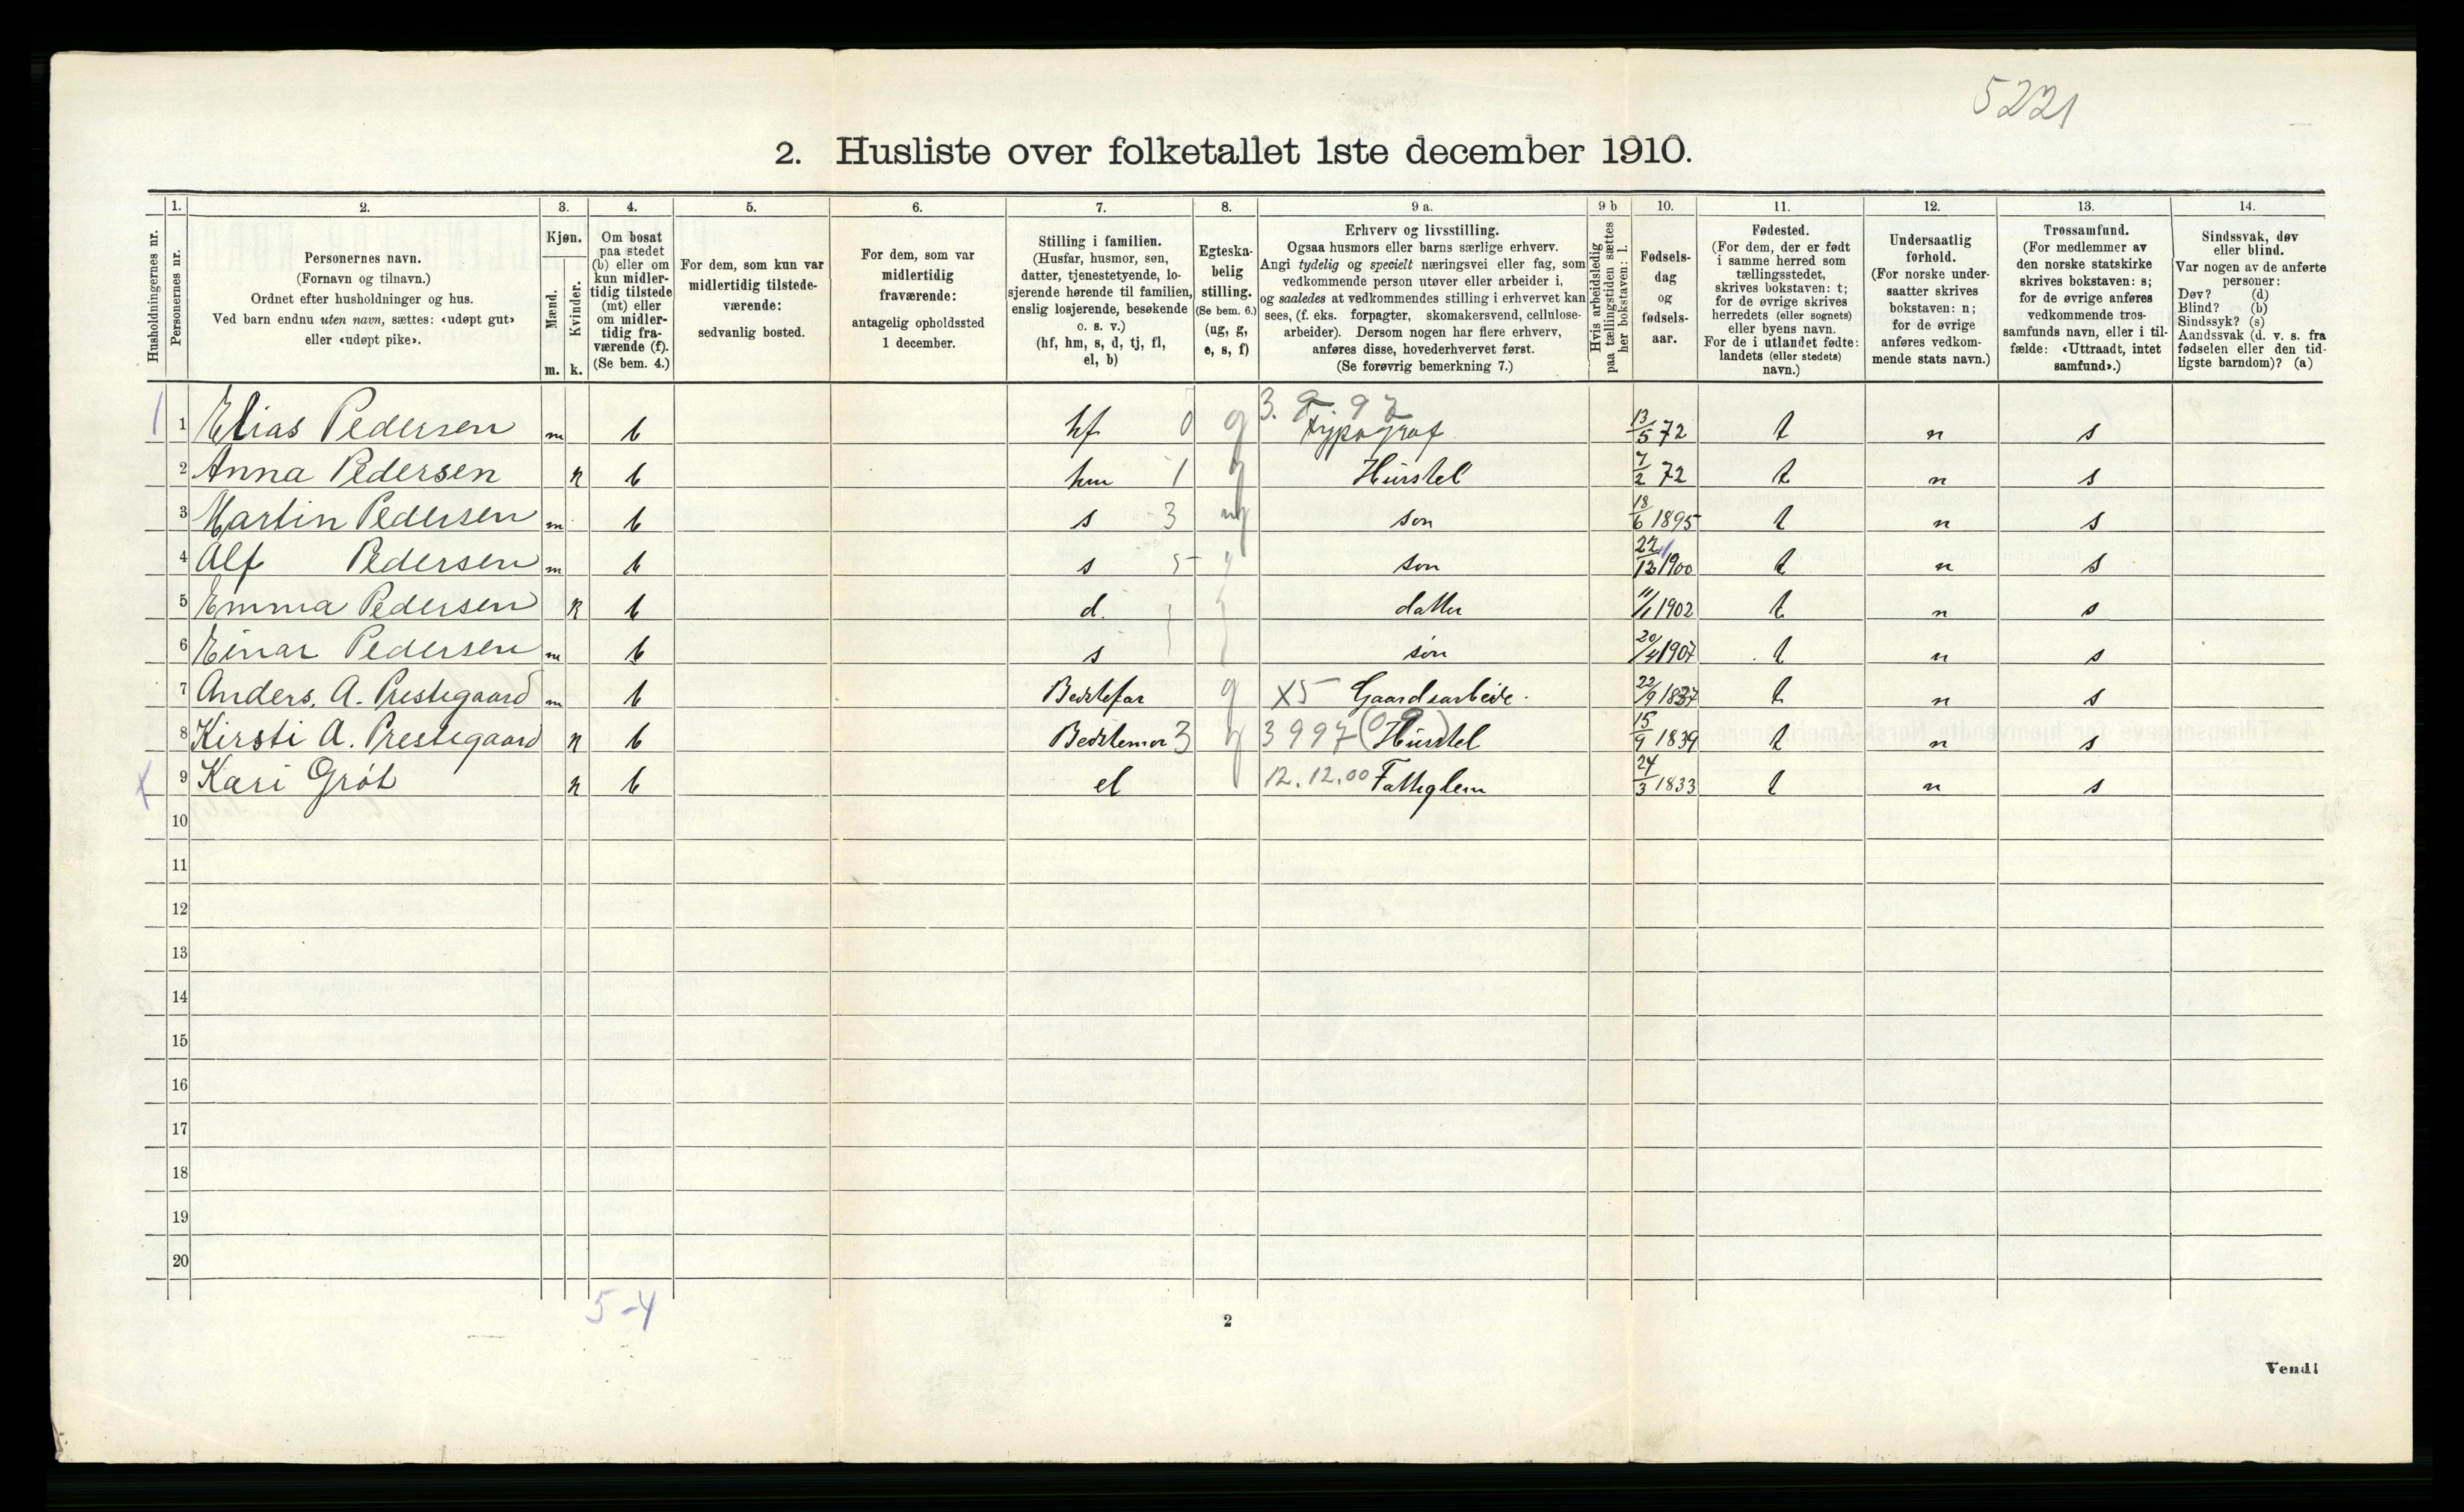 5221
2. Husliste over folketallet 1ste december 1910.
Husholdningernes nr.
1.
Personernes nr.
2.
Personernes navn.
(Fornavn og tilnavn.)
Ordnet efter husholdninger og hus.
Ved barn endnu uten navn, sættes: «udøpt gut»
eller «udøpt pike».
3.
Kjøn.
Mænd.
Kvinder.
m. k.
4.
Om bosat
paa stedet
(b) eller om
kun midler-
tidig tilstede
(mt) eller
om midler-
tidig fra-
værende (f).
(Se bem. 4.)
5.
For dem, som kun var
midlertidig tilstede-
værende:
sedvanlig bosted.
6.
For dem, som var
midlertidig
fraværende:
antagelig opholdssted
1 december.
7.
Stilling i familien.
(Husfar, husmor, søn,
datter, tjenestetyende, lo-
sjerende hørende til familien,
enslig losjerende, besøkende
o. s. v.)
(hf, hm, s, d, tj, fl,
el, b)
8.
Egteska-
belig
stilling.
(Se bem. 6.)
(ug, g,
e, s, f)
9 a.
Erhverv og livsstilling.
Ogsaa husmors eller barns særlige erhverv.
Angi tydelig og specielt næringsvei eller fag, som
vedkommende person utøver eller arbeider i,
og saaledes at vedkommendes stilling i erhvervet kan
sees, (f. eks. forpagter, skomakersvend, cellulose-
arbeider). Dersom nogen har flere erhverv,
anføres disse, hovederhvervet først.
(Se forøvrig bemerkning 7.)
9 b
Hvis arbeidsledig
paa tællingstiden sættes
her bokstaven: l.
10.
Fødsels-
dag
og
fødsels-
aar.
11.
Fødested.
(For dem, der er født
i samme herred som
tællingsstedet,
skrives bokstaven: t;
for de øvrige skrives
herredets (eller sognets)
eller byens navn.
For de i utlandet fødte:
landets (eller stedets)
navn.)
12.
Undersaatlig
forhold.
(For norske under-
saatter skrives
bokstaven: n;
for de øvrige
anføres vedkom-
mende stats navn.)
13.
Trossamfund.
(For medlemmer av
den norske statskirke
skrives bokstaven: s;
for de øvrige anføres
vedkommende tros-
samfunds navn, eller i til-
fælde: «Uttraadt, intet
samfund».)
14.
Sindssvak, døv
eller blind.
Var nogen av de anførte
personer:
Døv? (d)
Blind? (b)
Sindssyk? (s)
Aandssvak (d. v. s. fra
fødselen eller den tid-
ligste barndom)? (a)
1 1 Elias Pedersen m b hf 0 g 3. 9 97 Typograf 13/5 72 t n s
2 Anna Pedersen k b hm 1 g Husstel 7/2 72 t n s
3 Martin Pedersen m b s 3 ug søn 18/6 1895 t n s
4 Alf Pedersen m b s 5 søn 22/12 1900 t n s
5 Emma Pedersen k b d. datter 11/1 1902 t n s
6 Einar Pedersen m b s søn 20/4 1907 t n s
7 Anders. A. Prestegaard m b Bedstefar g X5 Gaardsarbeide. 22/9 1837 t n s
8 Kirsti A. Prestegaard k b Bedstemor 3 g 3997 (09) Husstel 15/9 1839 t n s
X 9 Kari Grøt k b el 12.12.00 Fattiglem 24/3 1833 t n s
10
11
12
13
14
15
16
17
18
19
20
5-4
2
Vend!